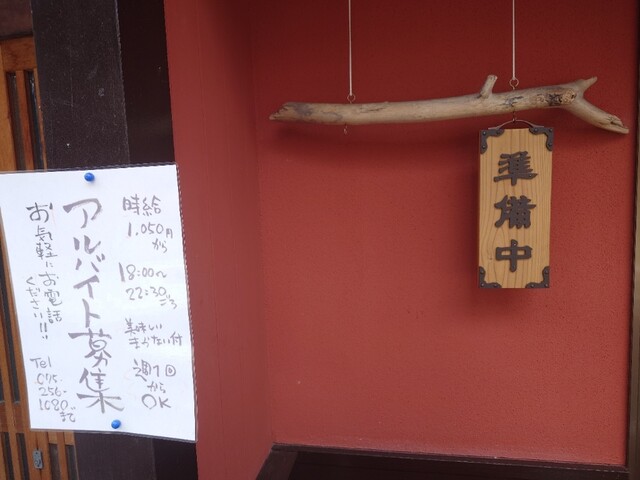 時給
1,050円
から
18:00〜
22:30ごろ
美味しい
まかない付
週1回
から
OK
アルバイト募集
お気軽にお電話
ください!!
Tel
075-
256-
1080まで
準備中